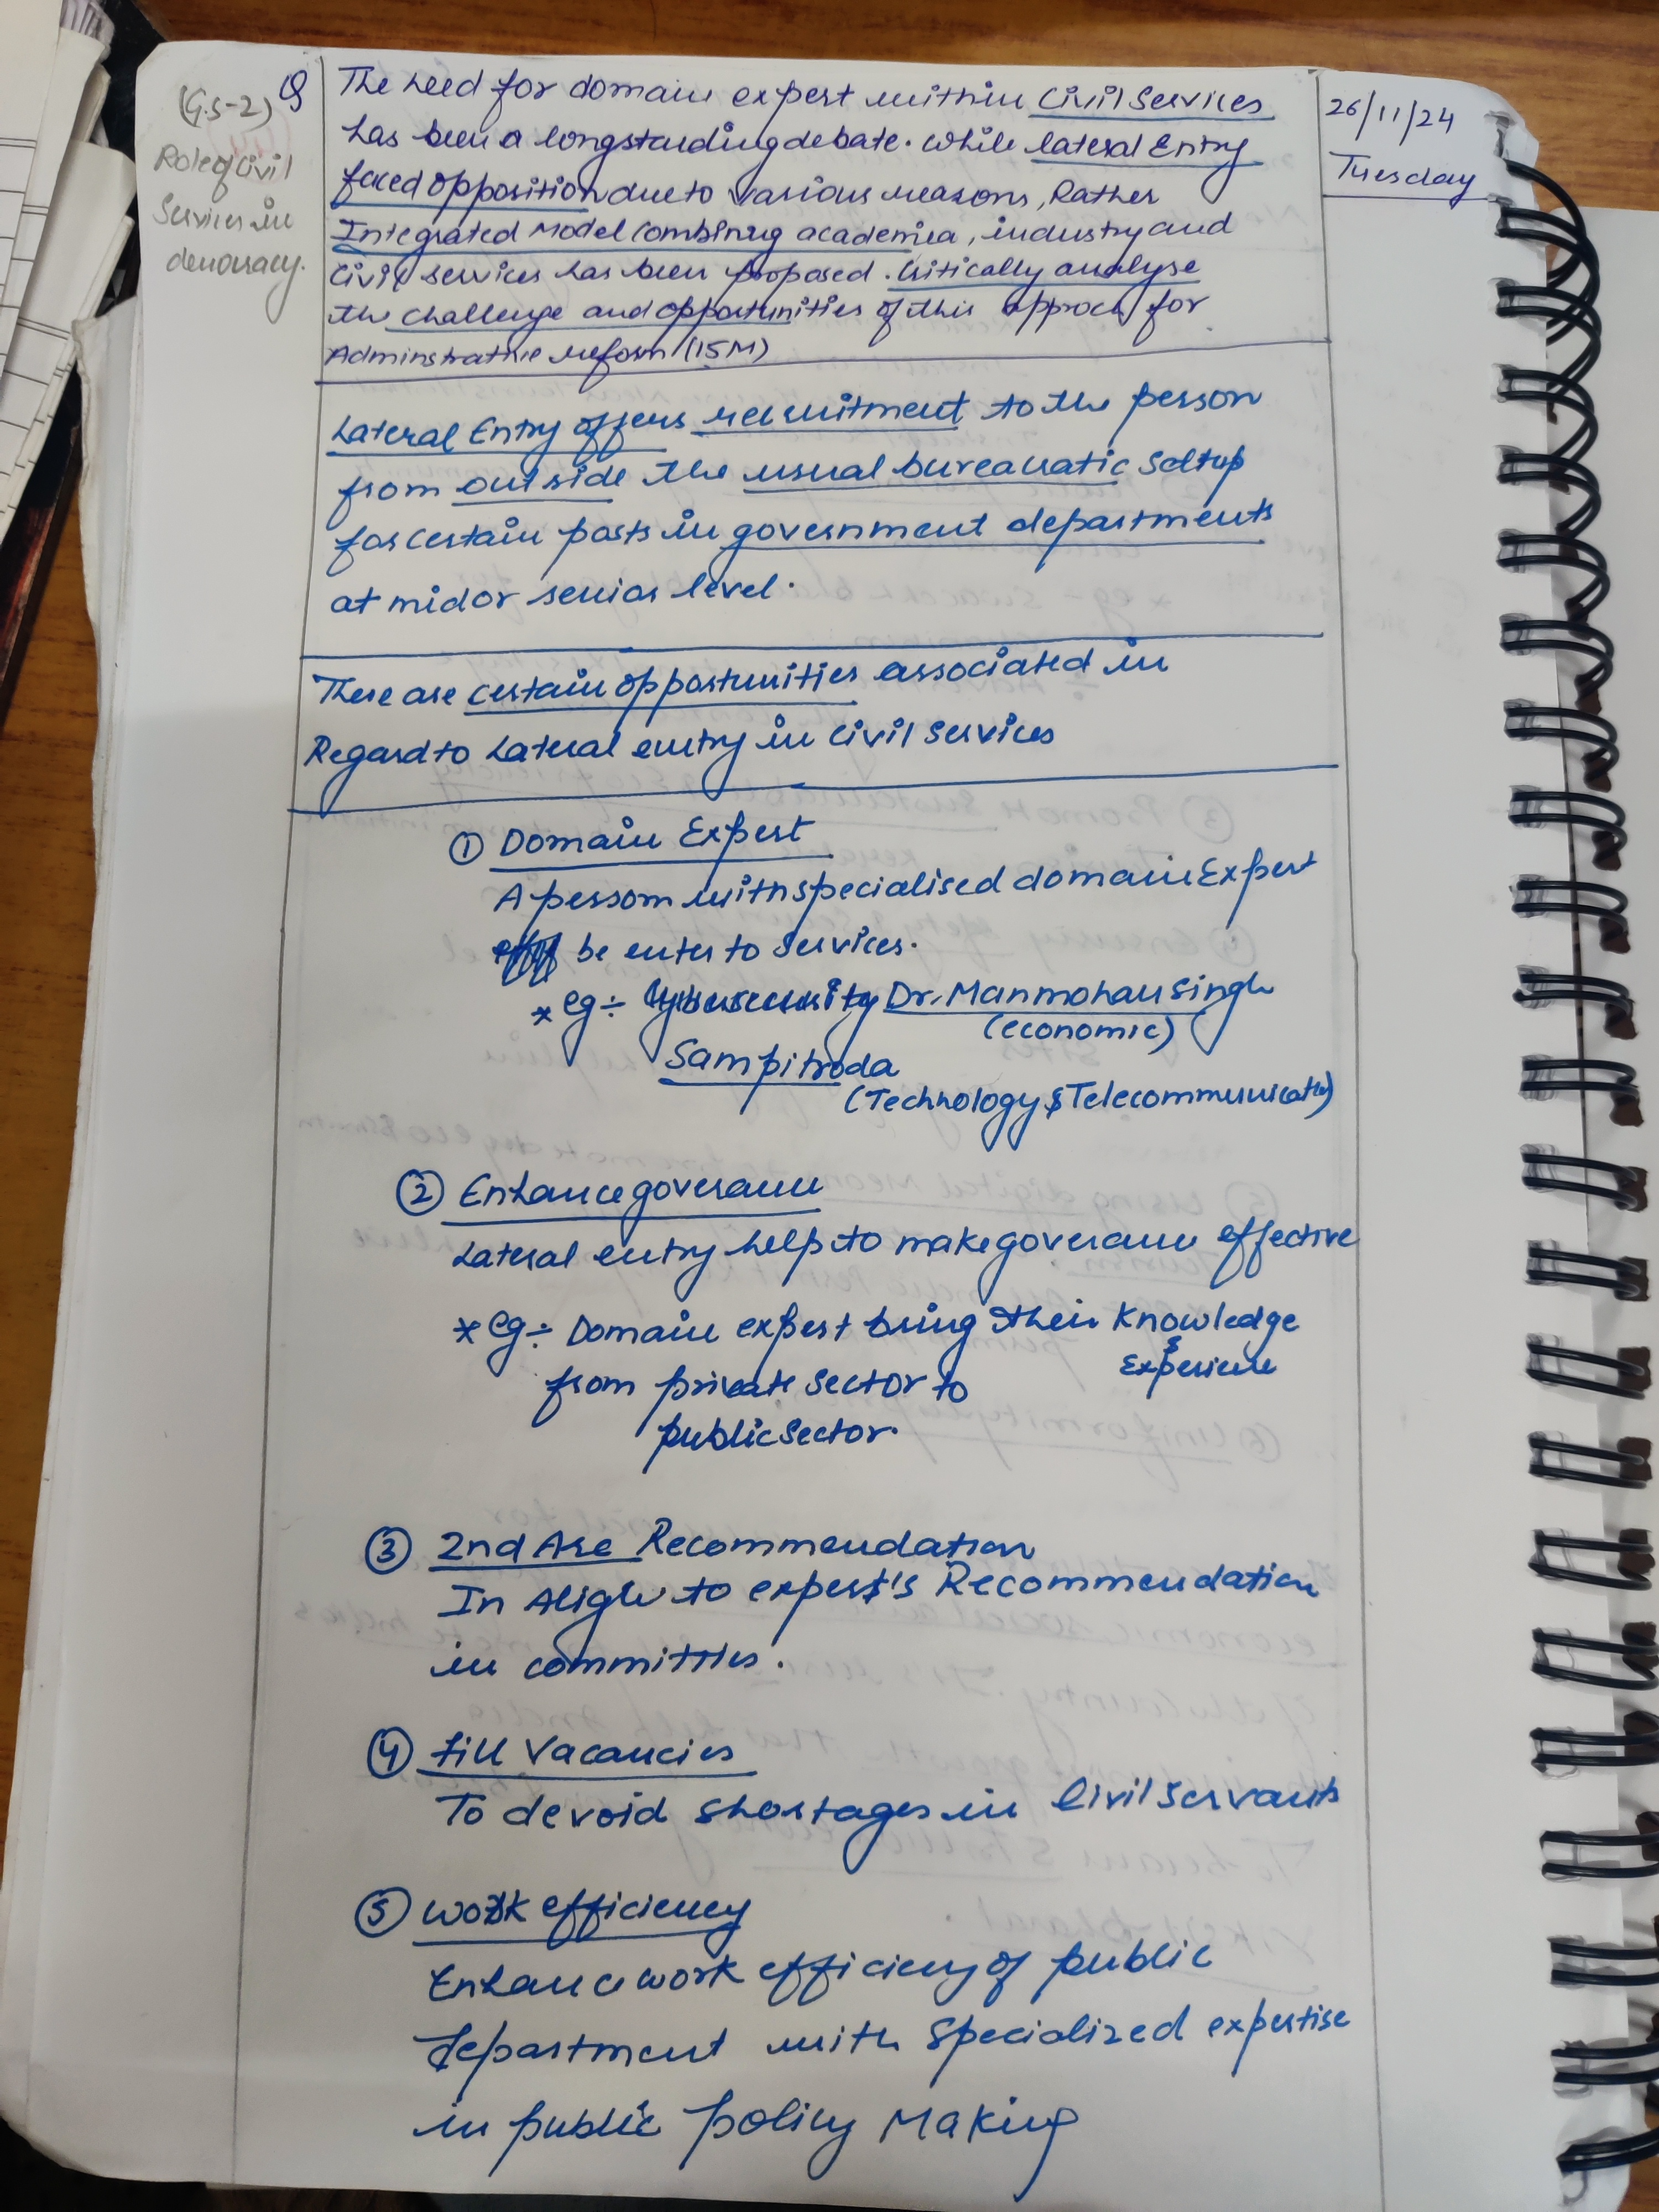 (G.S-2)
Role of Civil
Services in
democracy.
Q The need for domain expert within Civil Services
has been a longstanding debate. while lateral Entry
faced opposition due to various reasons, Rather
Integrated Model combining academia, industry and
Civil services has been proposed. Critically analyse
the challenge and opportunities of this approch for
Adminstrative reform (15M)
26/11/24
Tuesday
Lateral Entry offers recruitment to the person
from outside the usual bureauratic setup
for certain posts in government departments
at mid or senior level.
There are certain opportunities associated in
Regard to Lateral entry in Civil Services
① Domain Expert
A persom with specialised domain Expert
be enter to services.
* eg ÷ Cybersecurity Dr. Manmohan Singh
(economic)
Sam pitroda
(Technology & Telecommunicatn)
② Enhance goverance
Lateral entry help to make goverance effective
* eg ÷ Domain expert bring their Knowledge
& Experience
from private sector to
public sector.
③ 2nd Arc Recommendation
In Align to expert's Recommendation
in committies.
④ Fill Vacancies
To devoid shortages in Civil Servants
⑤ Work efficiency
Enhance work efficiency of public
department with specialized expertise
in public policy Making